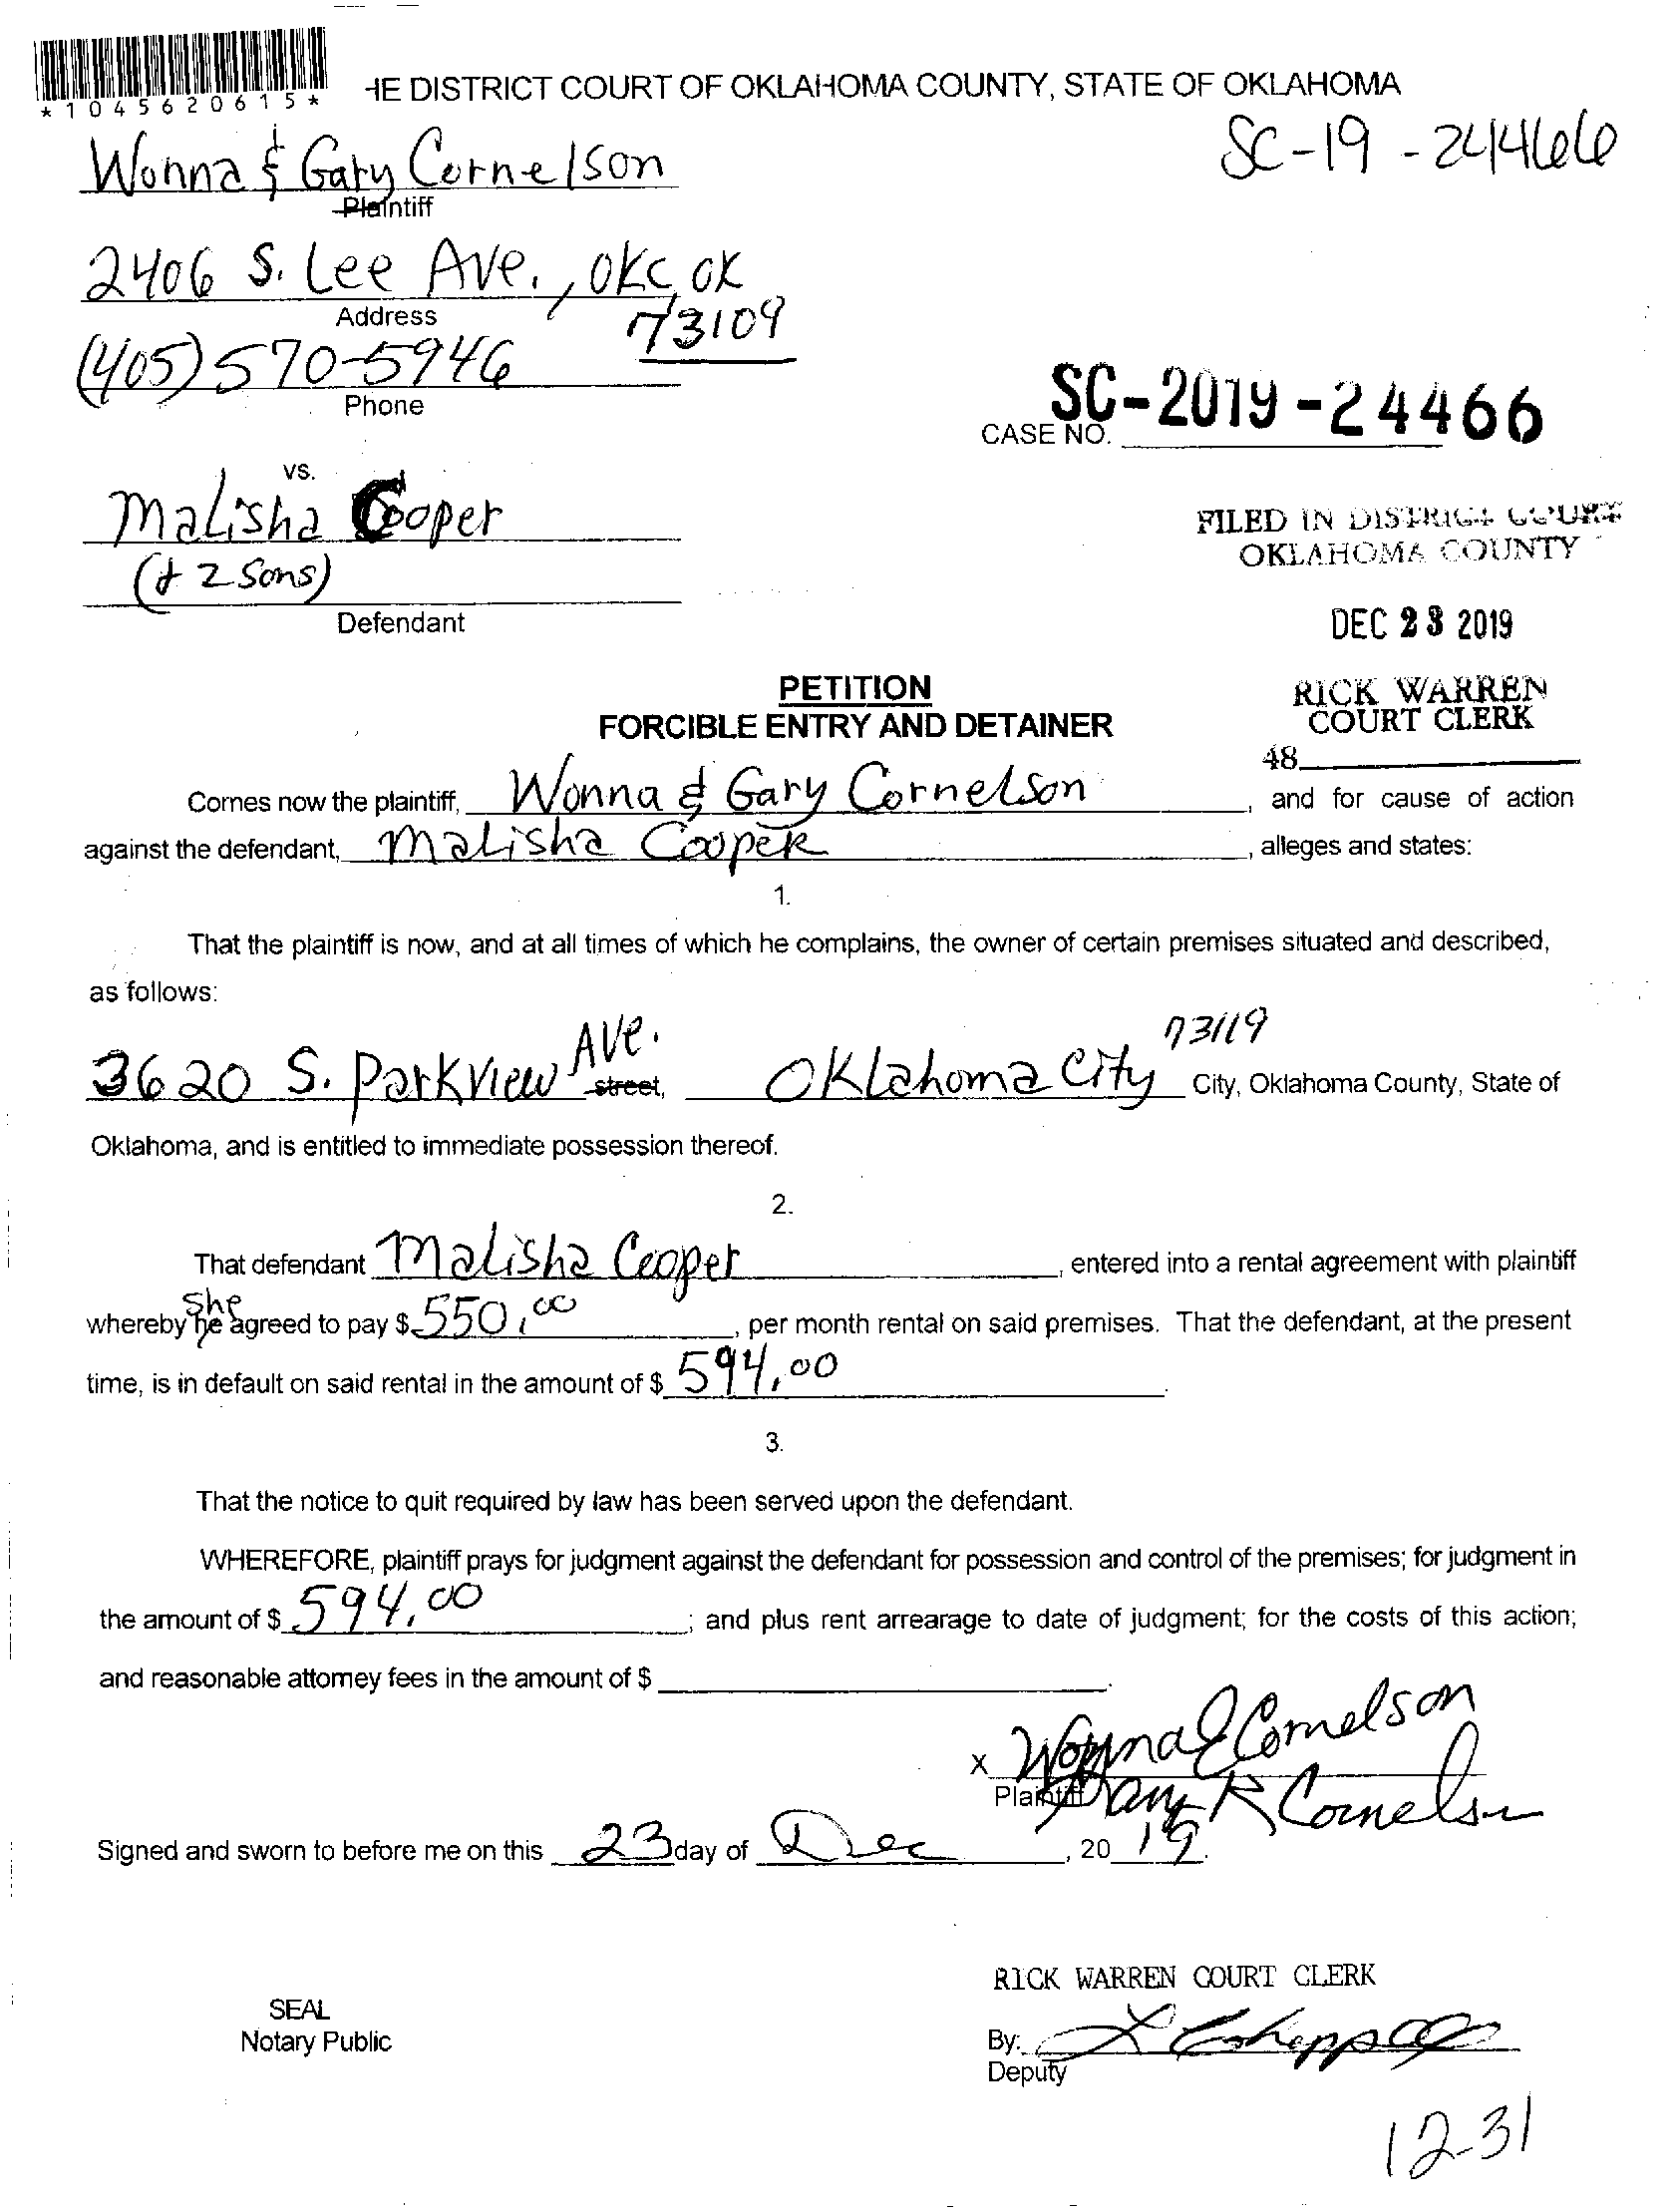 *1045620615*
HE DISTRICT COURT OF OKLAHOMA COUNTY, STATE OF OKLAHOMA
SC-19-24466
Wonna & Gary Cornelson
Plaintiff
2406 S. Lee Ave., OKC, OK
73109
Address
(405) 570-5946
Phone
SC-2019-24466
CASE NO.
vs.
Malisha Cooper
(& 2 Sons)
Defendant
FILED IN DISTRICT COURT
OKLAHOMA COUNTY
DEC 23 2019
RICK WARREN
COURT CLERK
48
PETITION
FORCIBLE ENTRY AND DETAINER
Comes now the plaintiff, Wonna & Gary Cornelson, and for cause of action
against the defendant, Malisha Cooper, alleges and states:
1.
That the plaintiff is now, and at all times of which he complains, the owner of certain premises situated and described,
as follows:
3620 S. Parkview Ave. street, Oklahoma City 73119 City, Oklahoma County, State of
Oklahoma, and is entitled to immediate possession thereof.
2.
That defendant Malisha Cooper, entered into a rental agreement with plaintiff
whereby she he agreed to pay $ 550.00, per month rental on said premises. That the defendant, at the present
time, is in default on said rental in the amount of $ 594.00.
3.
That the notice to quit required by law has been served upon the defendant.
WHEREFORE, plaintiff prays for judgment against the defendant for possession and control of the premises; for judgment in
the amount of $ 594.00; and plus rent arrearage to date of judgment; for the costs of this action;
and reasonable attorney fees in the amount of $.
x Wonna & Cornelson
Plaintiff Gary R Cornelson
Signed and sworn to before me on this 23 day of Dec, 20 19.
RICK WARREN COURT CLERK
SEAL
Notary Public
By:
Deputy
12-31